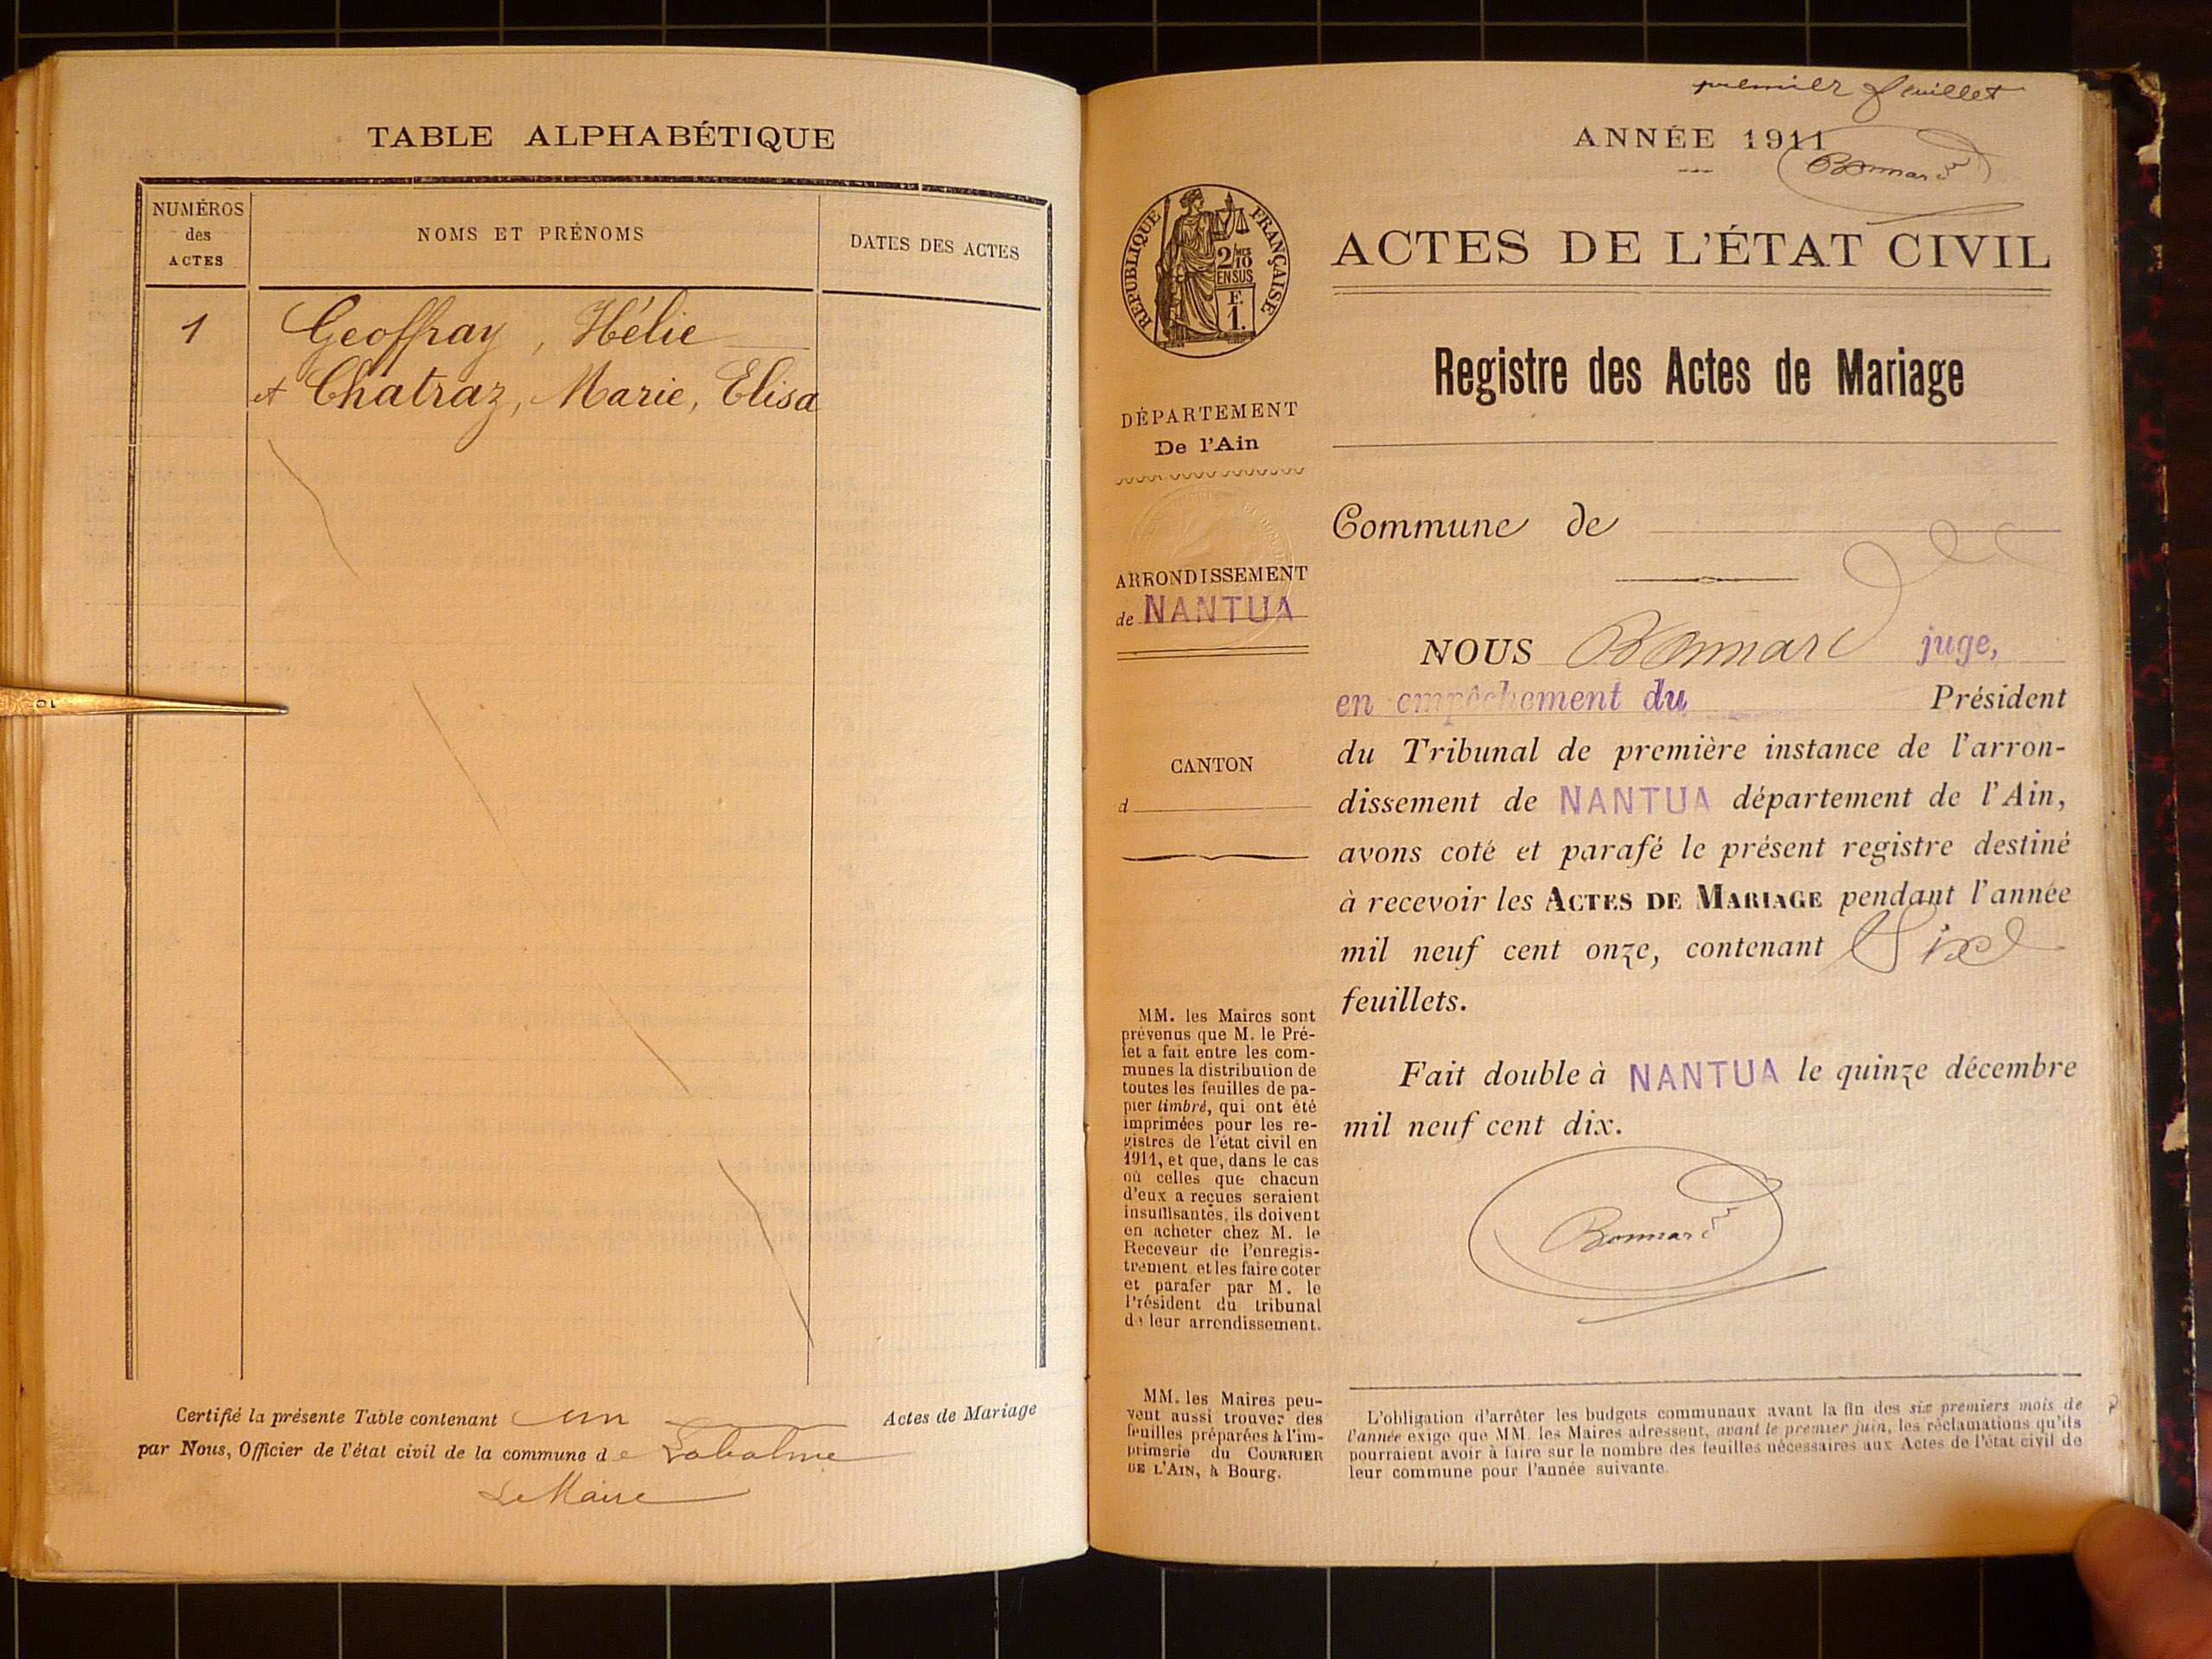 TABLE ALPHABÉTIQUE
NUMÉROS
des
ACTES
NOMS ET PRÉNOMS
DATES DES ACTES
1
Geoffray, Hélie
et Chatraz, Marie, Elisa
Certifié la présente Table contenant un Actes de Mariage
par Nous, Officier de l'état civil de la commune de Labalme
Le Maire
premier feuillet
ANNÉE 1911
Bonnard
RÉPUBLIQUE FRANÇAISE
2/10
EN SUS
F.
1.
ACTES DE L'ÉTAT CIVIL
Registre des Actes de Mariage
DÉPARTEMENT
De l'Ain
ARRONDISSEMENT
de NANTUA
CANTON
d
MM. les Maires sont
prévenus que M. le Pré-
fet a fait entre les com-
munes la distribution de
toutes les feuilles de pa-
pier timbré, qui ont été
imprimées pour les re-
gistres de l'état civil en
1911, et que, dans le cas
où celles que chacun
d'eux a reçues seraient
insuffisantes, ils doivent
en acheter chez M. le
Receveur de l'enregis-
trement et les faire coter
et parafer par M. le
Président du tribunal
de leur arrondissement.
MM. les Maires peu-
vent aussi trouver des
feuilles préparées à l'im-
primerie du COURRIER
DE L'AIN, à Bourg.
Commune de
NOUS Bonnard juge,
en empêchement du Président
du Tribunal de première instance de l'arron-
dissement de NANTUA département de l'Ain,
avons coté et parafé le présent registre destiné
à recevoir les ACTES DE MARIAGE pendant l'année
mil neuf cent onze, contenant Six
feuillets.
Fait double à NANTUA le quinze décembre
mil neuf cent dix.
Bonnard
L'obligation d'arrêter les budgets communaux avant la fin des six premiers mois de
l'année exige que MM. les Maires adressent, avant le premier juin, les réclamations qu'ils
pourraient avoir à faire sur le nombre des feuilles nécessaires aux Actes de l'état civil de
leur commune pour l'année suivante.